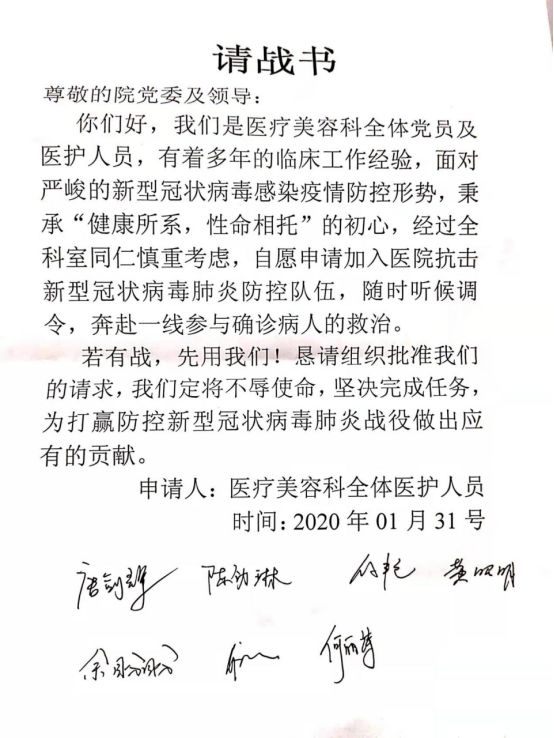 请战书
尊敬的院党委及领导：
你们好，我们是医疗美容科全体党员及
医护人员，有着多年的临床工作经验，面对
严峻的新型冠状病毒感染疫情防控形势，秉
承“健康所系，性命相托”的初心，经过全
科室同仁慎重考虑，自愿申请加入医院抗击
新型冠状病毒肺炎防控队伍，随时听候调
令，奔赴一线参与确诊病人的救治。
若有战，先用我们！恳请组织批准我们
的请求，我们定将不辱使命，坚决完成任务，
为打赢防控新型冠状病毒肺炎战役做出应
有的贡献。
申请人：医疗美容科全体医护人员
时间：2020 年 01 月 31 号
唐剑 陈幼琳 黄明
余 何丽